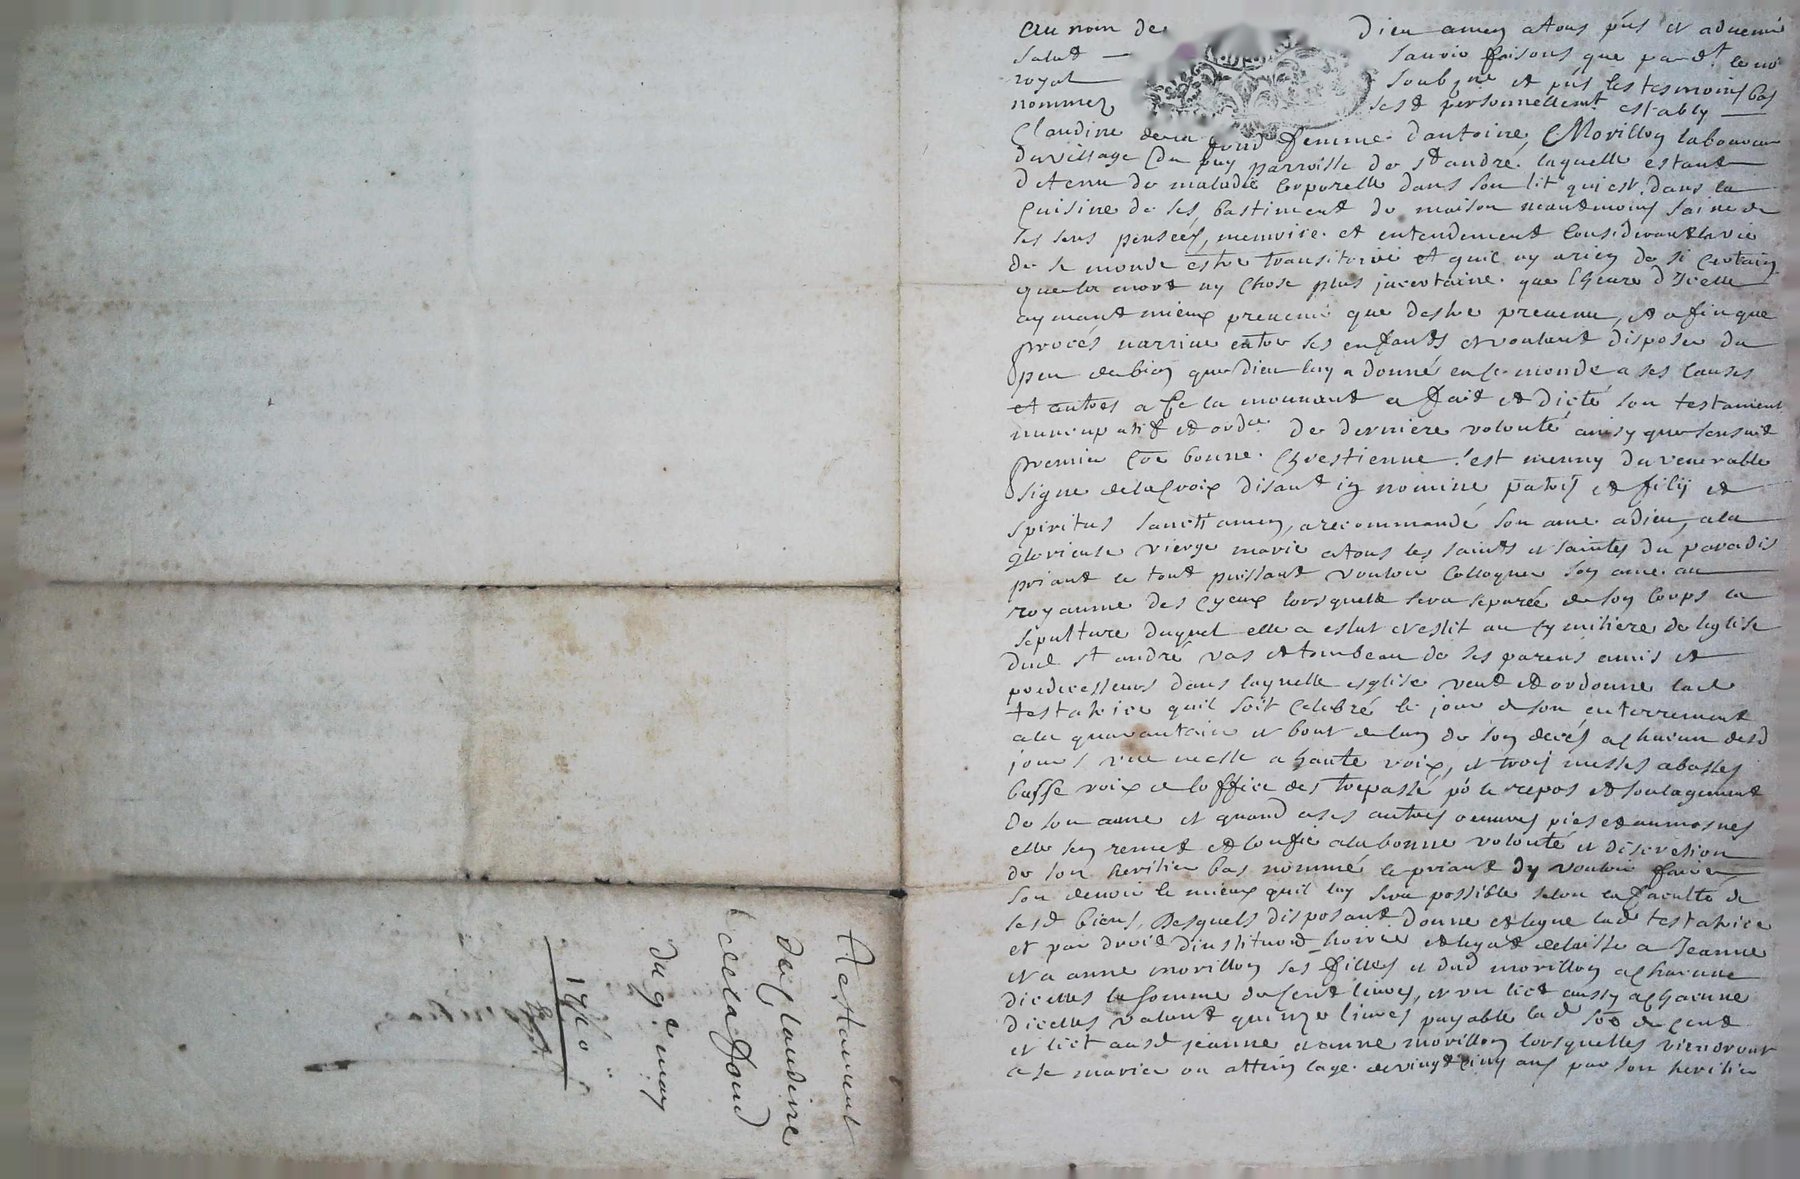 Au nom de Dieu amen a tous pnts et advenir
salut savoir faisons que pard.t le no.re
royal soubz.né et pnts les tesmoins bas
nommez sest personnellem.t estably
Claudine dela foud femme dantoine Morillon laboureur
du village Du puy parroisse de st andré laquelle estant
détenu de maladie corporelle dans son lit qui est dans la
cuisine de ses bastiment de maison neantmoins saine de
ses sens pensees, memoire et entendement considerant la vie
de ce monde estre transitoire et quil ny a rien de si certain
que la mort ny chose plus incertaine que lheure dicelle
aymant mieux prevenir que destre prevenu, et afin que
procés narrive entre ses enfants et voulant disposer du
peu de bien que dieu luy a donné en ce monde a ses causes
et autres a ce la mouvant a fait et dicté son testament
nuncupatif et ord.ce de derniere volonté ainsy que sensuit
premier coe bonne chrestienne sest muny du venerable
signe de la croix disant in nomine patris et filij et
spiritus sancti amen, a recommandé son ame a dieu, a la
glorieuse vierge marie a tous les saints et saintes du paradis
priant le tout puissant vouloir colloquer son ame au
royaume des cyeux lorsquelle sera separée de son corps la
sépulture duquel elle a eslut et eslit au cymitiere de leglise
dud st andré vas et tombeau de ses parens amis et
predecesseurs dans laquelle esglise veut et ordonne lad
testatrice quil soit celebré le jour de son enterrement
a la quarantain et bout de lan de son decés a chacun desd
jours une messe a haute voix, et trois messes a basses
basse voix de loffice des trepassé po le repos et soulagement
de son ame et quand a ses autres oeuvres pies et aumosnes
elle sen remet et confie a la bonne volonté et discretion
de son heritier bas nommé le priant dy vouloir faire
son devoir le mieux quil luy sera possible selon la faculté de
sesd biens, Desquels disposant donne et legue lad testatrice
et par droit dinstitu.on hoirie et legat delaisse a Jeanne
et a anne morillon ses filles et dud morillon a chacune
dicelles la somme de cent livres, et un lict aussy a chacune
dicelles valant quinze livres payable lad soe de cent
et lict ausd jeanne et anne morillon lorsquelles viendront
a se marier ou attein lage de vingt cinq ans par son heritier
Testament
de Claudine
dela foud
du 9.e may
1710